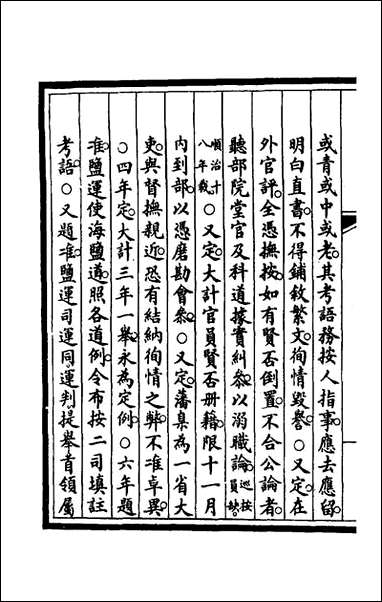 或青或中或老其考語務按人指事應去應留
明白直書不得鋪敘繁文徇情毀譽○又定在
外官評全憑撫按如有賢否倒置不合公論者
聽部院堂官及科道據實糾參以溺職論巡按員缺
順治十八年裁○又定大計官員賢否册籍限十一月
內到部以憑磨勘會參○又定藩臬為一省大
吏與督撫親近恐有結納徇情之弊不准卓異
○四年定大計三年一舉永為定例○六年題
准鹽運使海鹽道照各道例令布按二司填註
考語○又題准鹽運司運同運判提舉首領屬